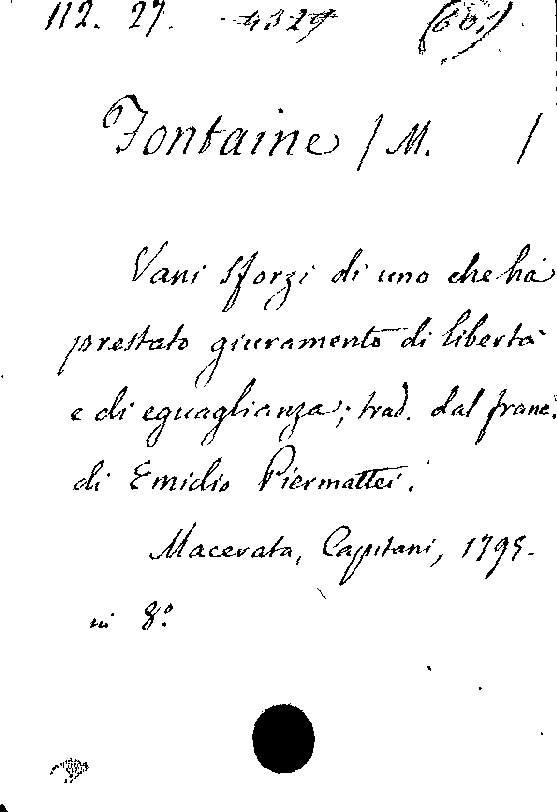 112. 27. 4329 (66.)
Fontaine / M. /
Vani sforzi di uno che ha
prestato giuramento di libertà
e di eguaglianza; trad. dal franc.
di Emidio Piermattei.
Macerata, Capitani, 1795.
in 8.°